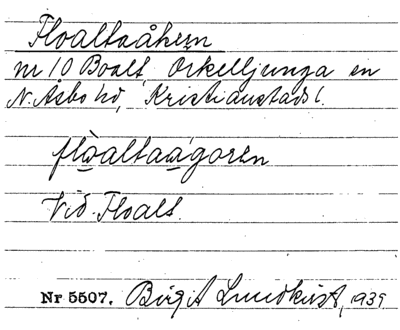 Floaltaåkern
nr 10 Boalt, Örkelljunga sn
N. Åsbo hd, Kristianstads l.
flòaltaågoren
Vid Floalt.
Nr 5507. Birgit Lundkvist, 1939